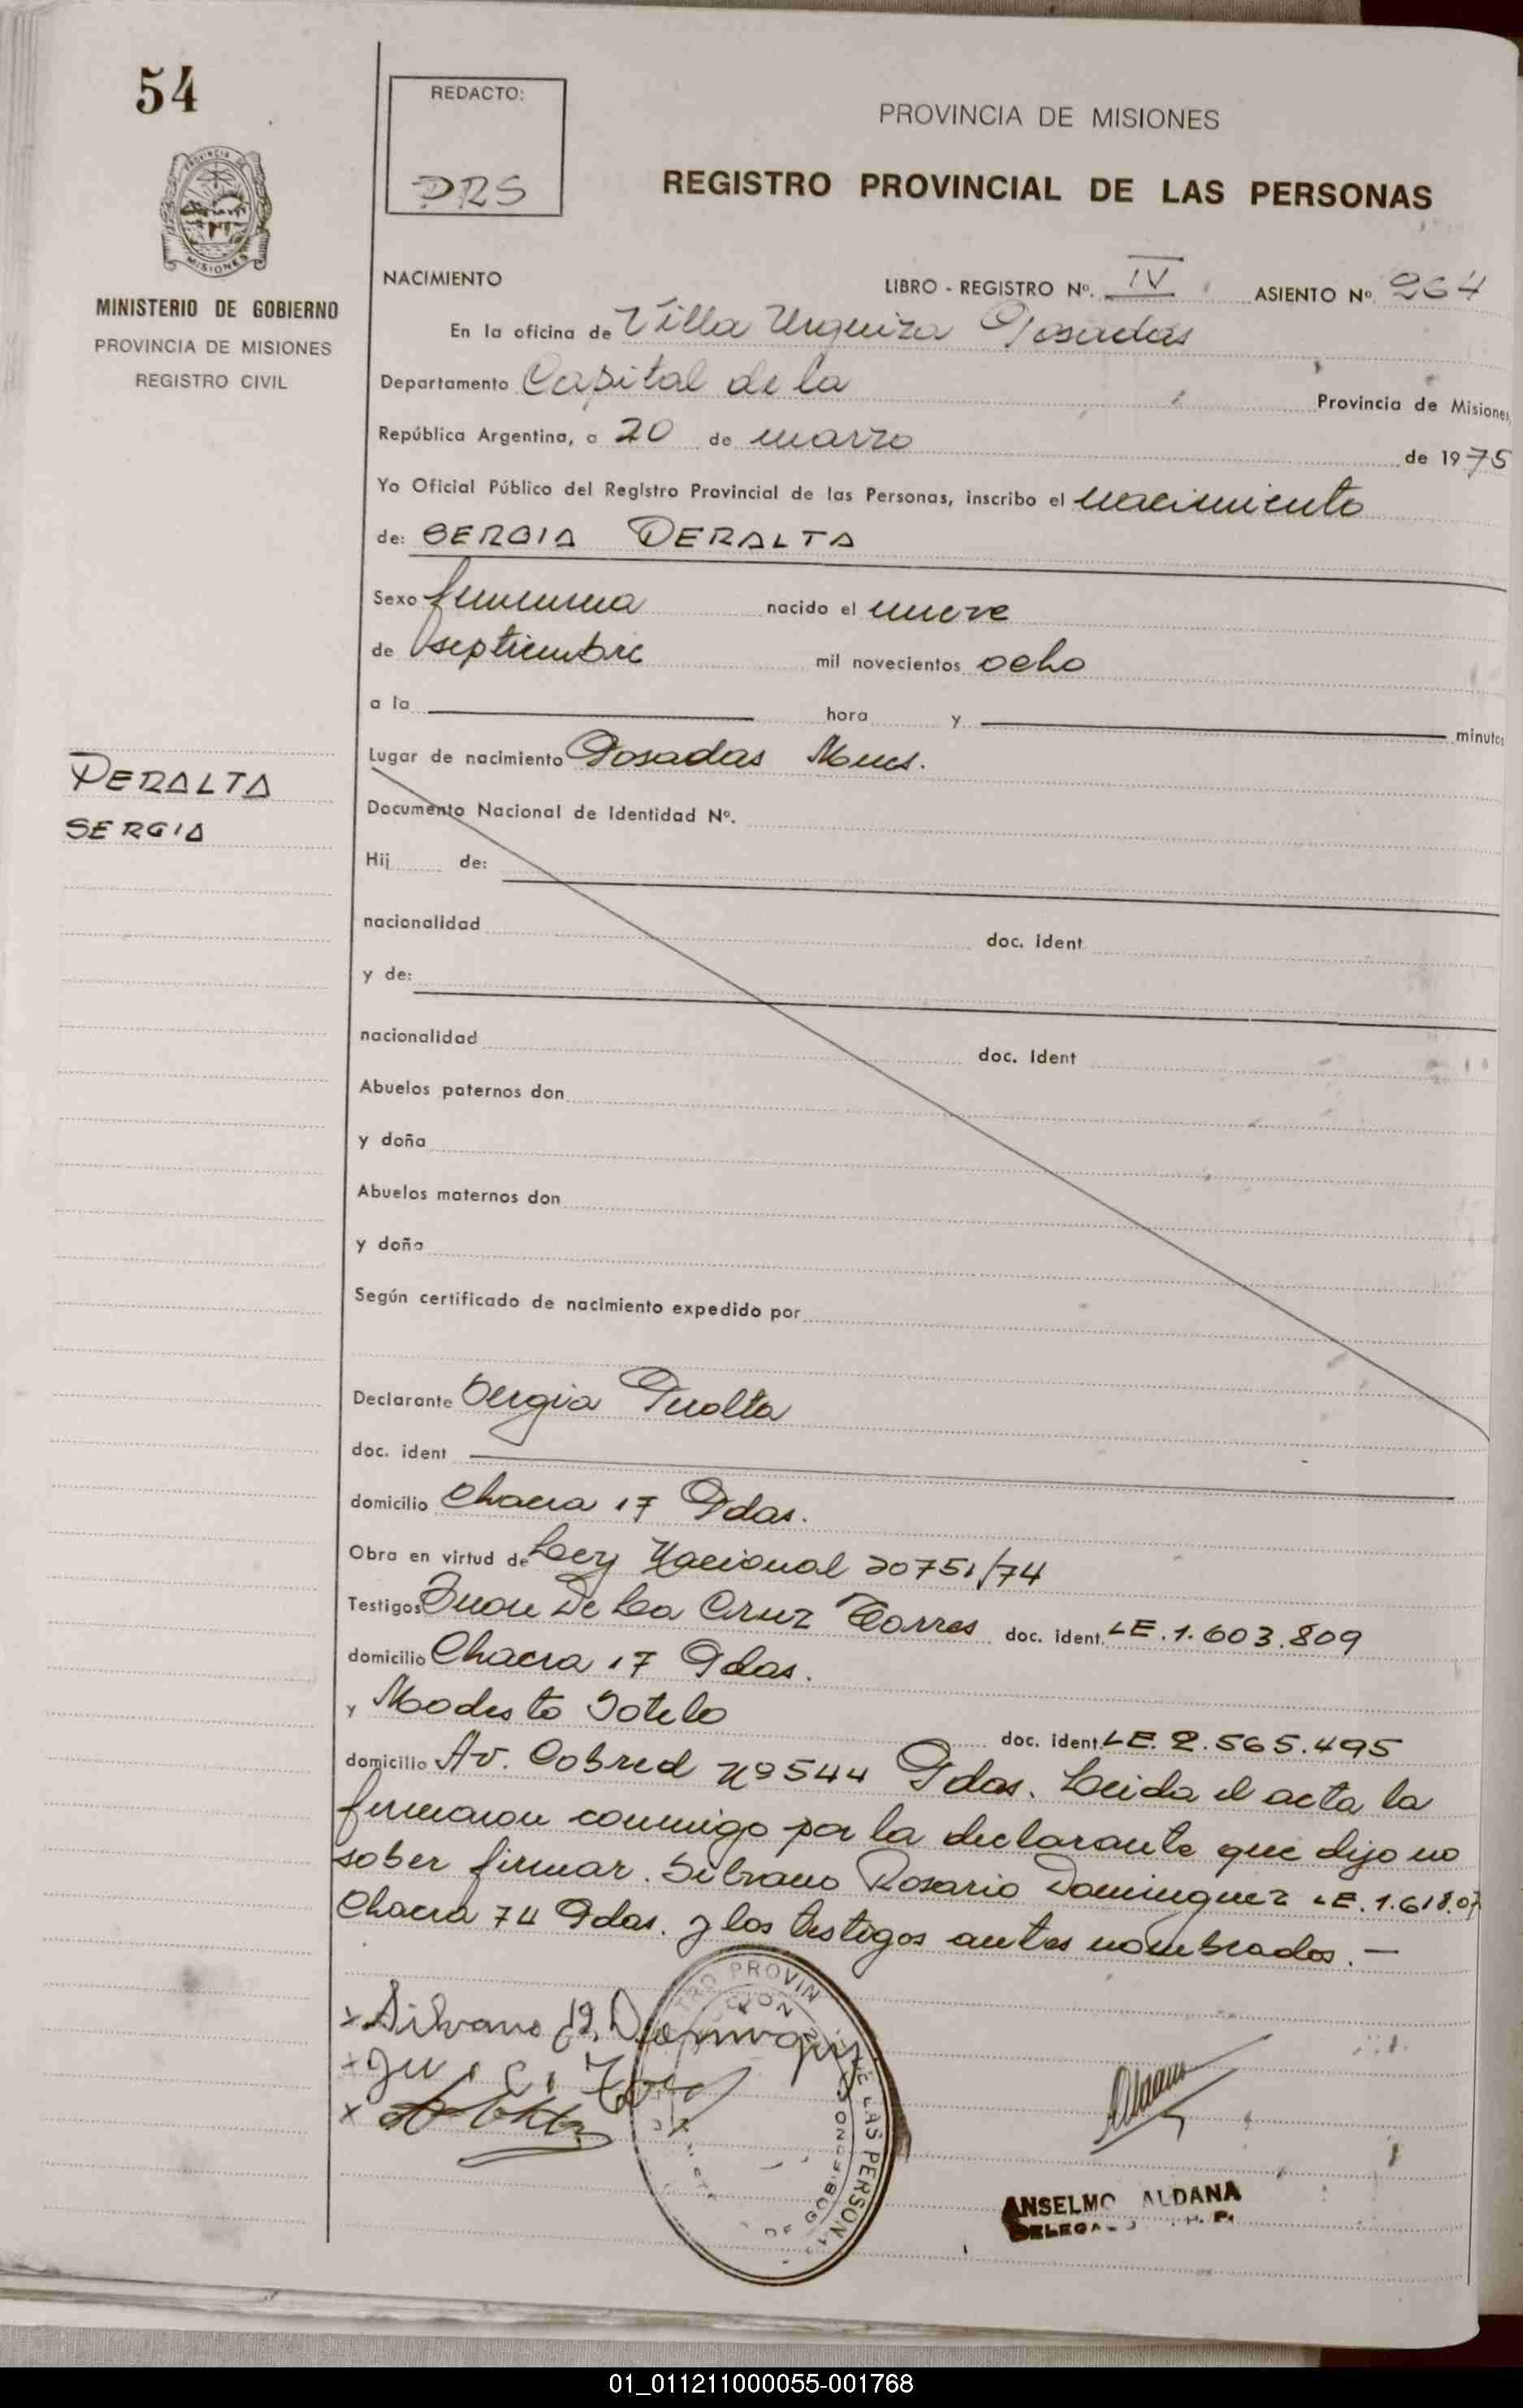 54
REDACTO:
DRS
PROVINCIA DE MISIONES
REGISTRO PROVINCIAL DE LAS PERSONAS
PROVINCIA DE
MISIONES
MINISTERIO DE GOBIERNO
PROVINCIA DE MISIONES
REGISTRO CIVIL
NACIMIENTO LIBRO - REGISTRO Nº. IV ASIENTO Nº. 264
En la oficina de Villa Urquiza Posadas
Departamento Capital de la Provincia de Misiones,
República Argentina, a 20 de marzo de 1975
Yo Oficial Público del Registro Provincial de las Personas, inscribo el nacimiento
de: SERGIA PERALTA
Sexo femenina nacido el nueve
de septiembre mil novecientos ocho
a la hora y minutos
Lugar de nacimiento Posadas Mnes.
PERALTA
SERGIA
Documento Nacional de Identidad Nº.
Hij de:
nacionalidad doc. ident
y de:
nacionalidad doc. ident
Abuelos paternos don
y doña
Abuelos maternos don
y doña
Según certificado de nacimiento expedido por
Declarante Sergia Peralta
doc. ident
domicilio Chacra 17 Pdas.
Obra en virtud de Ley Nacional 20751/74
Testigos Juan De La Cruz Torres doc. ident. LE. 1.603.809
domicilio Chacra 17 Pdas.
y Modesto Sotelo doc. ident. LE. 2.565.495
domicilio Av. Cobred Nº 544 Pdas. Leida el acta la
firmaron conmigo por la declarante que dijo no
saber firmar. Silvano Rosario Dominguez LE. 1.618.07
Chacra 74 Pdas. y los testigos antes nombrados. —
x Silvano R. Dominguez
x
x
PROVIN
LAS PERSON
DE GOBIERNO
ANSELMO ALDANA
01_011211000055-001768